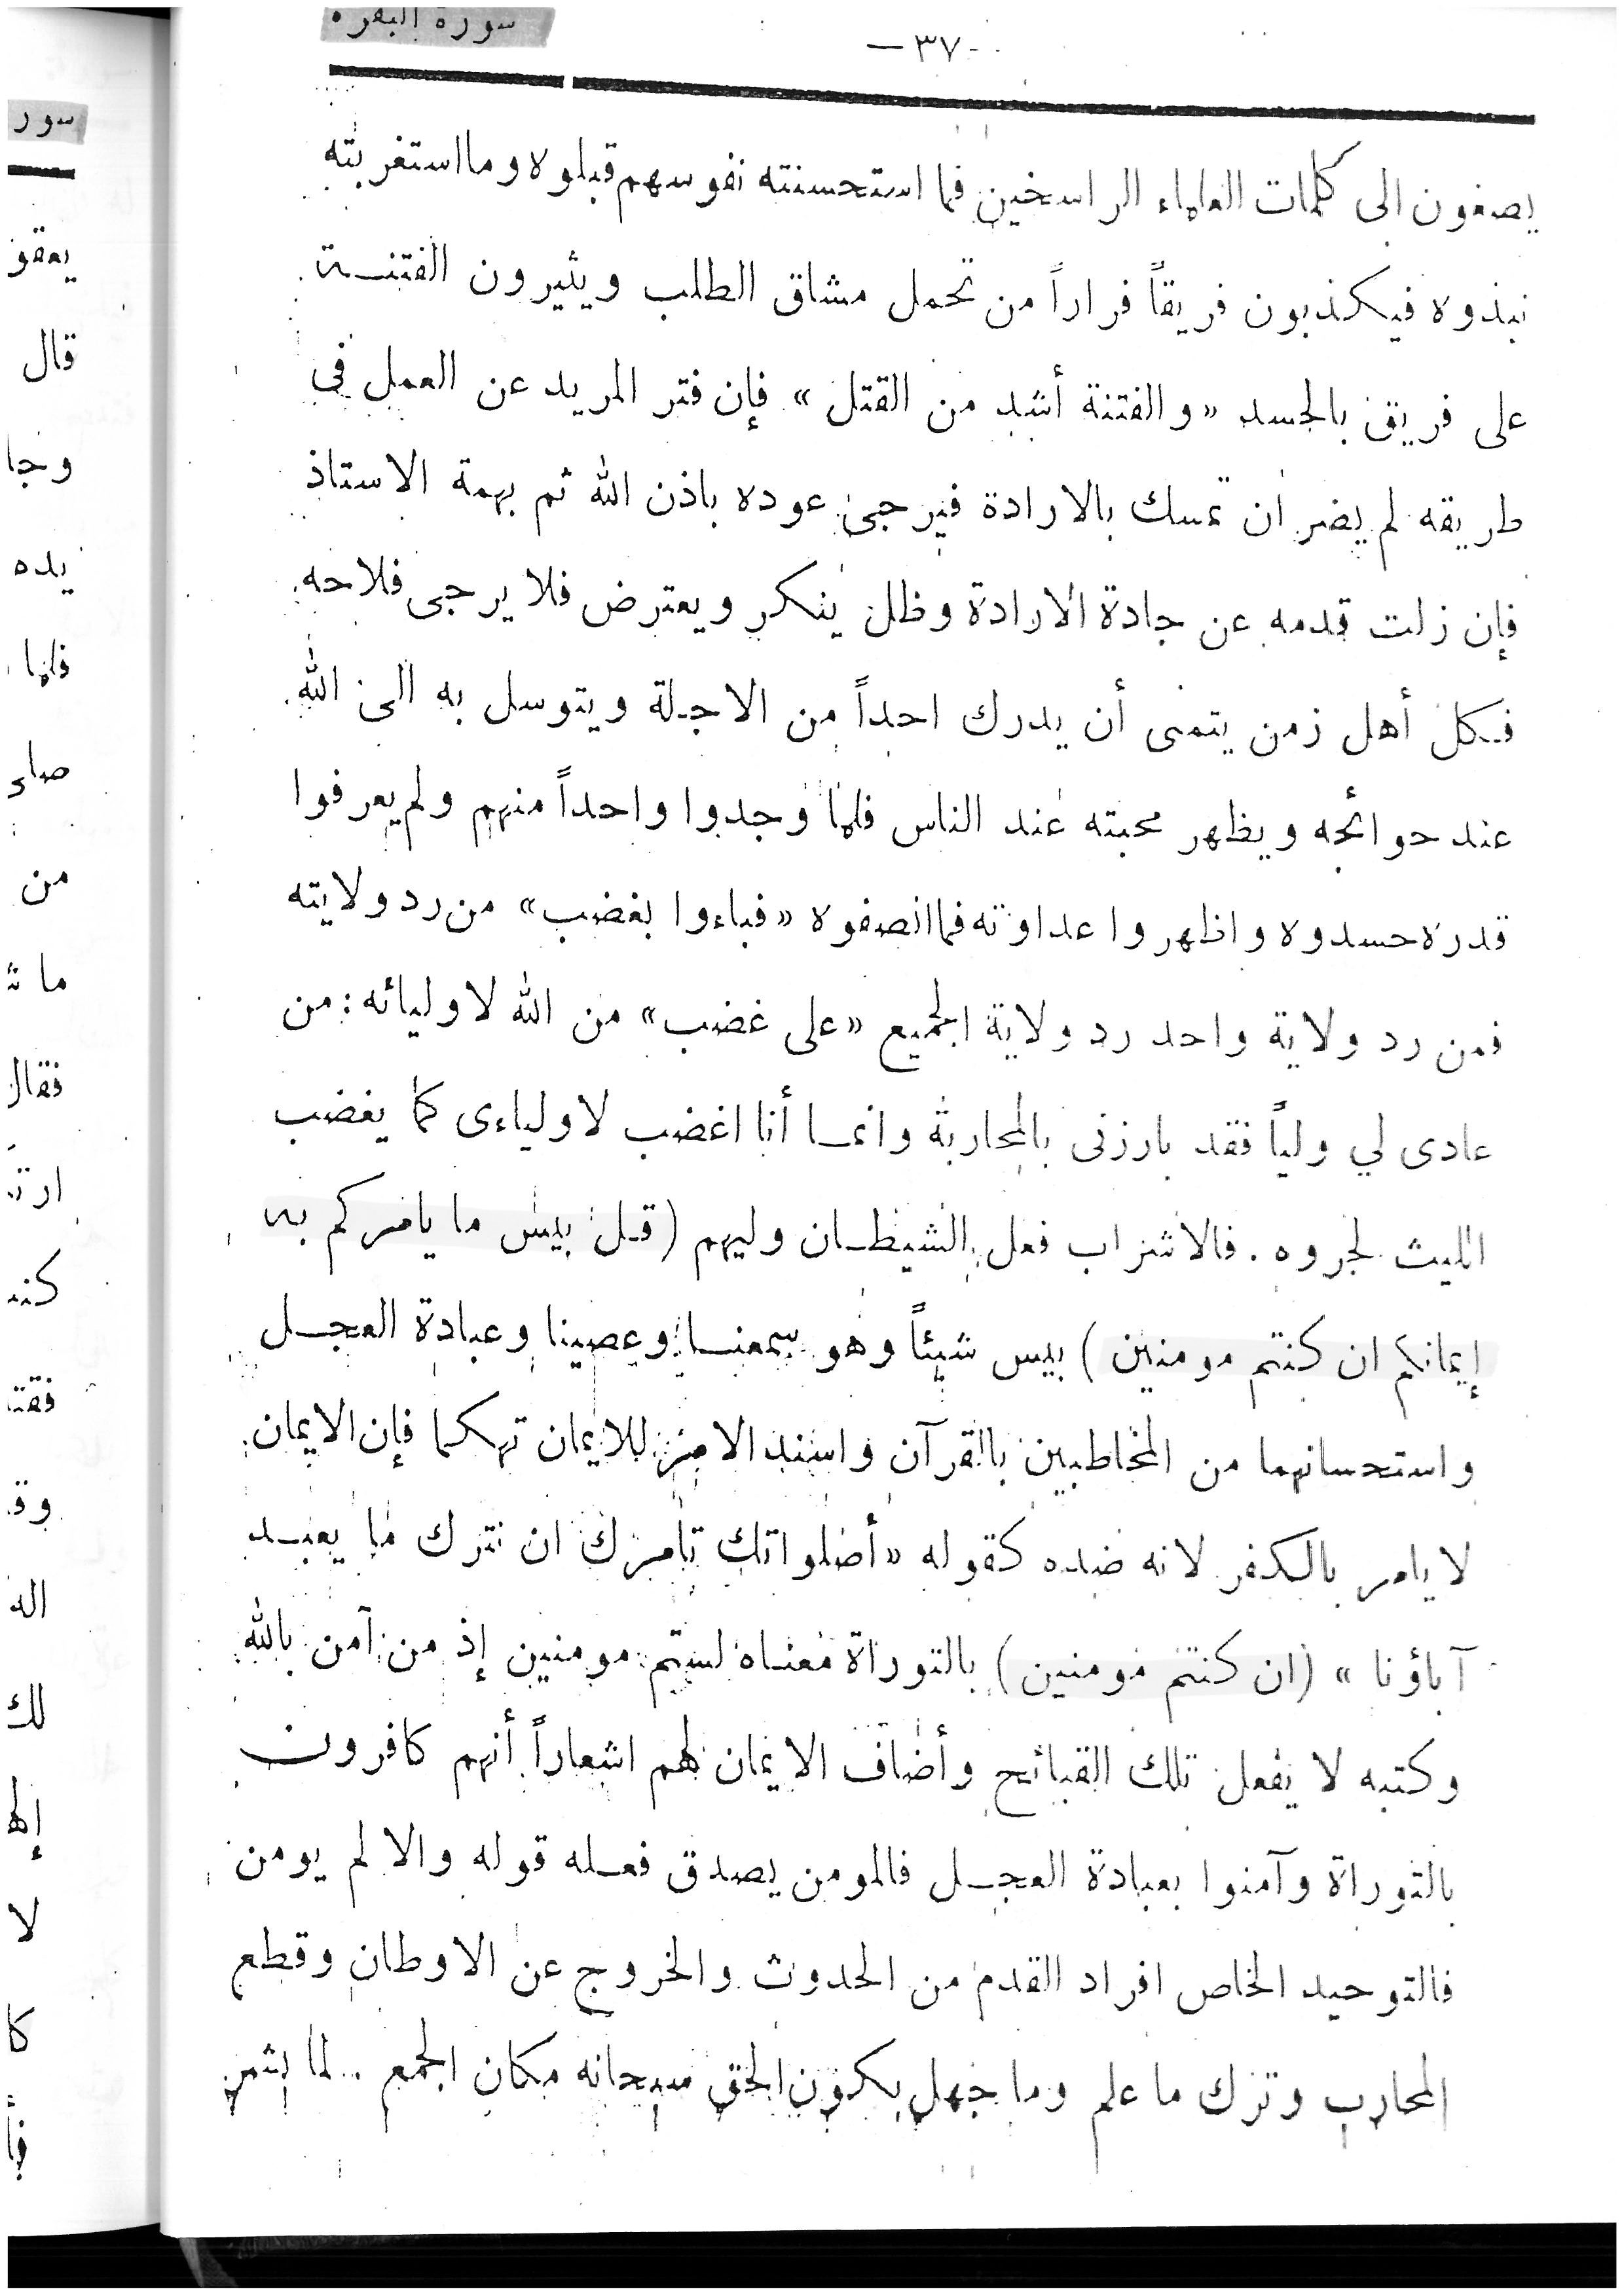 سورة البقرة
-٣٧-
يصغون الى كلمات العلماء الراسخين فما استحسنته نفوسهم قبلوه وما استغربته
نبذوه فيكذبون فريقاً فراراً من تحمل مشاق الطلب ويثيرون الفتنة
على فريق بالحسد «والفتنة أشد من القتل» فإن فتر المريد عن العمل في
طريقه لم يضر ان تمسك بالارادة فيرجى عوده باذن الله ثم بهمة الاستاذ
فإن زلت قدمه عن جادة الارادة وظل ينكر ويعترض فلا يرجى فلاحه
فكل أهل زمن يتمنى أن يدرك احداً من الاجلة ويتوسل به الى الله
عند حوائجه ويظهر محبته عند الناس فلما وجدوا واحداً منهم ولم يعرفوا
قدره حسدوه واظهروا عداوته فما انصفوه «فباءوا بغضب» من رد ولايته
فمن رد ولاية واحد رد ولاية الجميع «على غضب» من الله لاوليائه: من
عادى لي ولياً فقد بارزنى بالمحاربة وانما أنا اغضب لاولياءى كما يغضب
الليث لجروه. فالاشراب فعل الشيطان وليهم (قل بيس ما يامركم به
إيمانكم ان كنتم مومنين) بيس شيئاً وهو سمعنا وعصينا وعبادة العجل
واستحسانهما من المخاطبين بالقرآن واسند الامر للايمان تهكما فإن الايمان
لا يامر بالكفر لانه ضده كقوله «أصلواتك تامرك ان نترك ما يعبد
آباؤنا» (ان كنتم مومنين) بالتوراة معناه لستم مومنين إذ من آمن بالله
وكتبه لا يفعل تلك القبائح وأضاف الايمان لهم اشعاراً أنهم كافرون
بالتوراة وآمنوا بعبادة العجل فالمومن يصدق فعله قوله والا لم يومن
فالتوحيد الخاص افراد القدم من الحدوث والخروج عن الاوطان وقطع
المحارب وترك ما علم وما جهل بكون الحق سبحانه مكان الجمع .. لما
سور
يعقو
قال
وجا
يده
فلما
من
فقال
لك
لا
كا